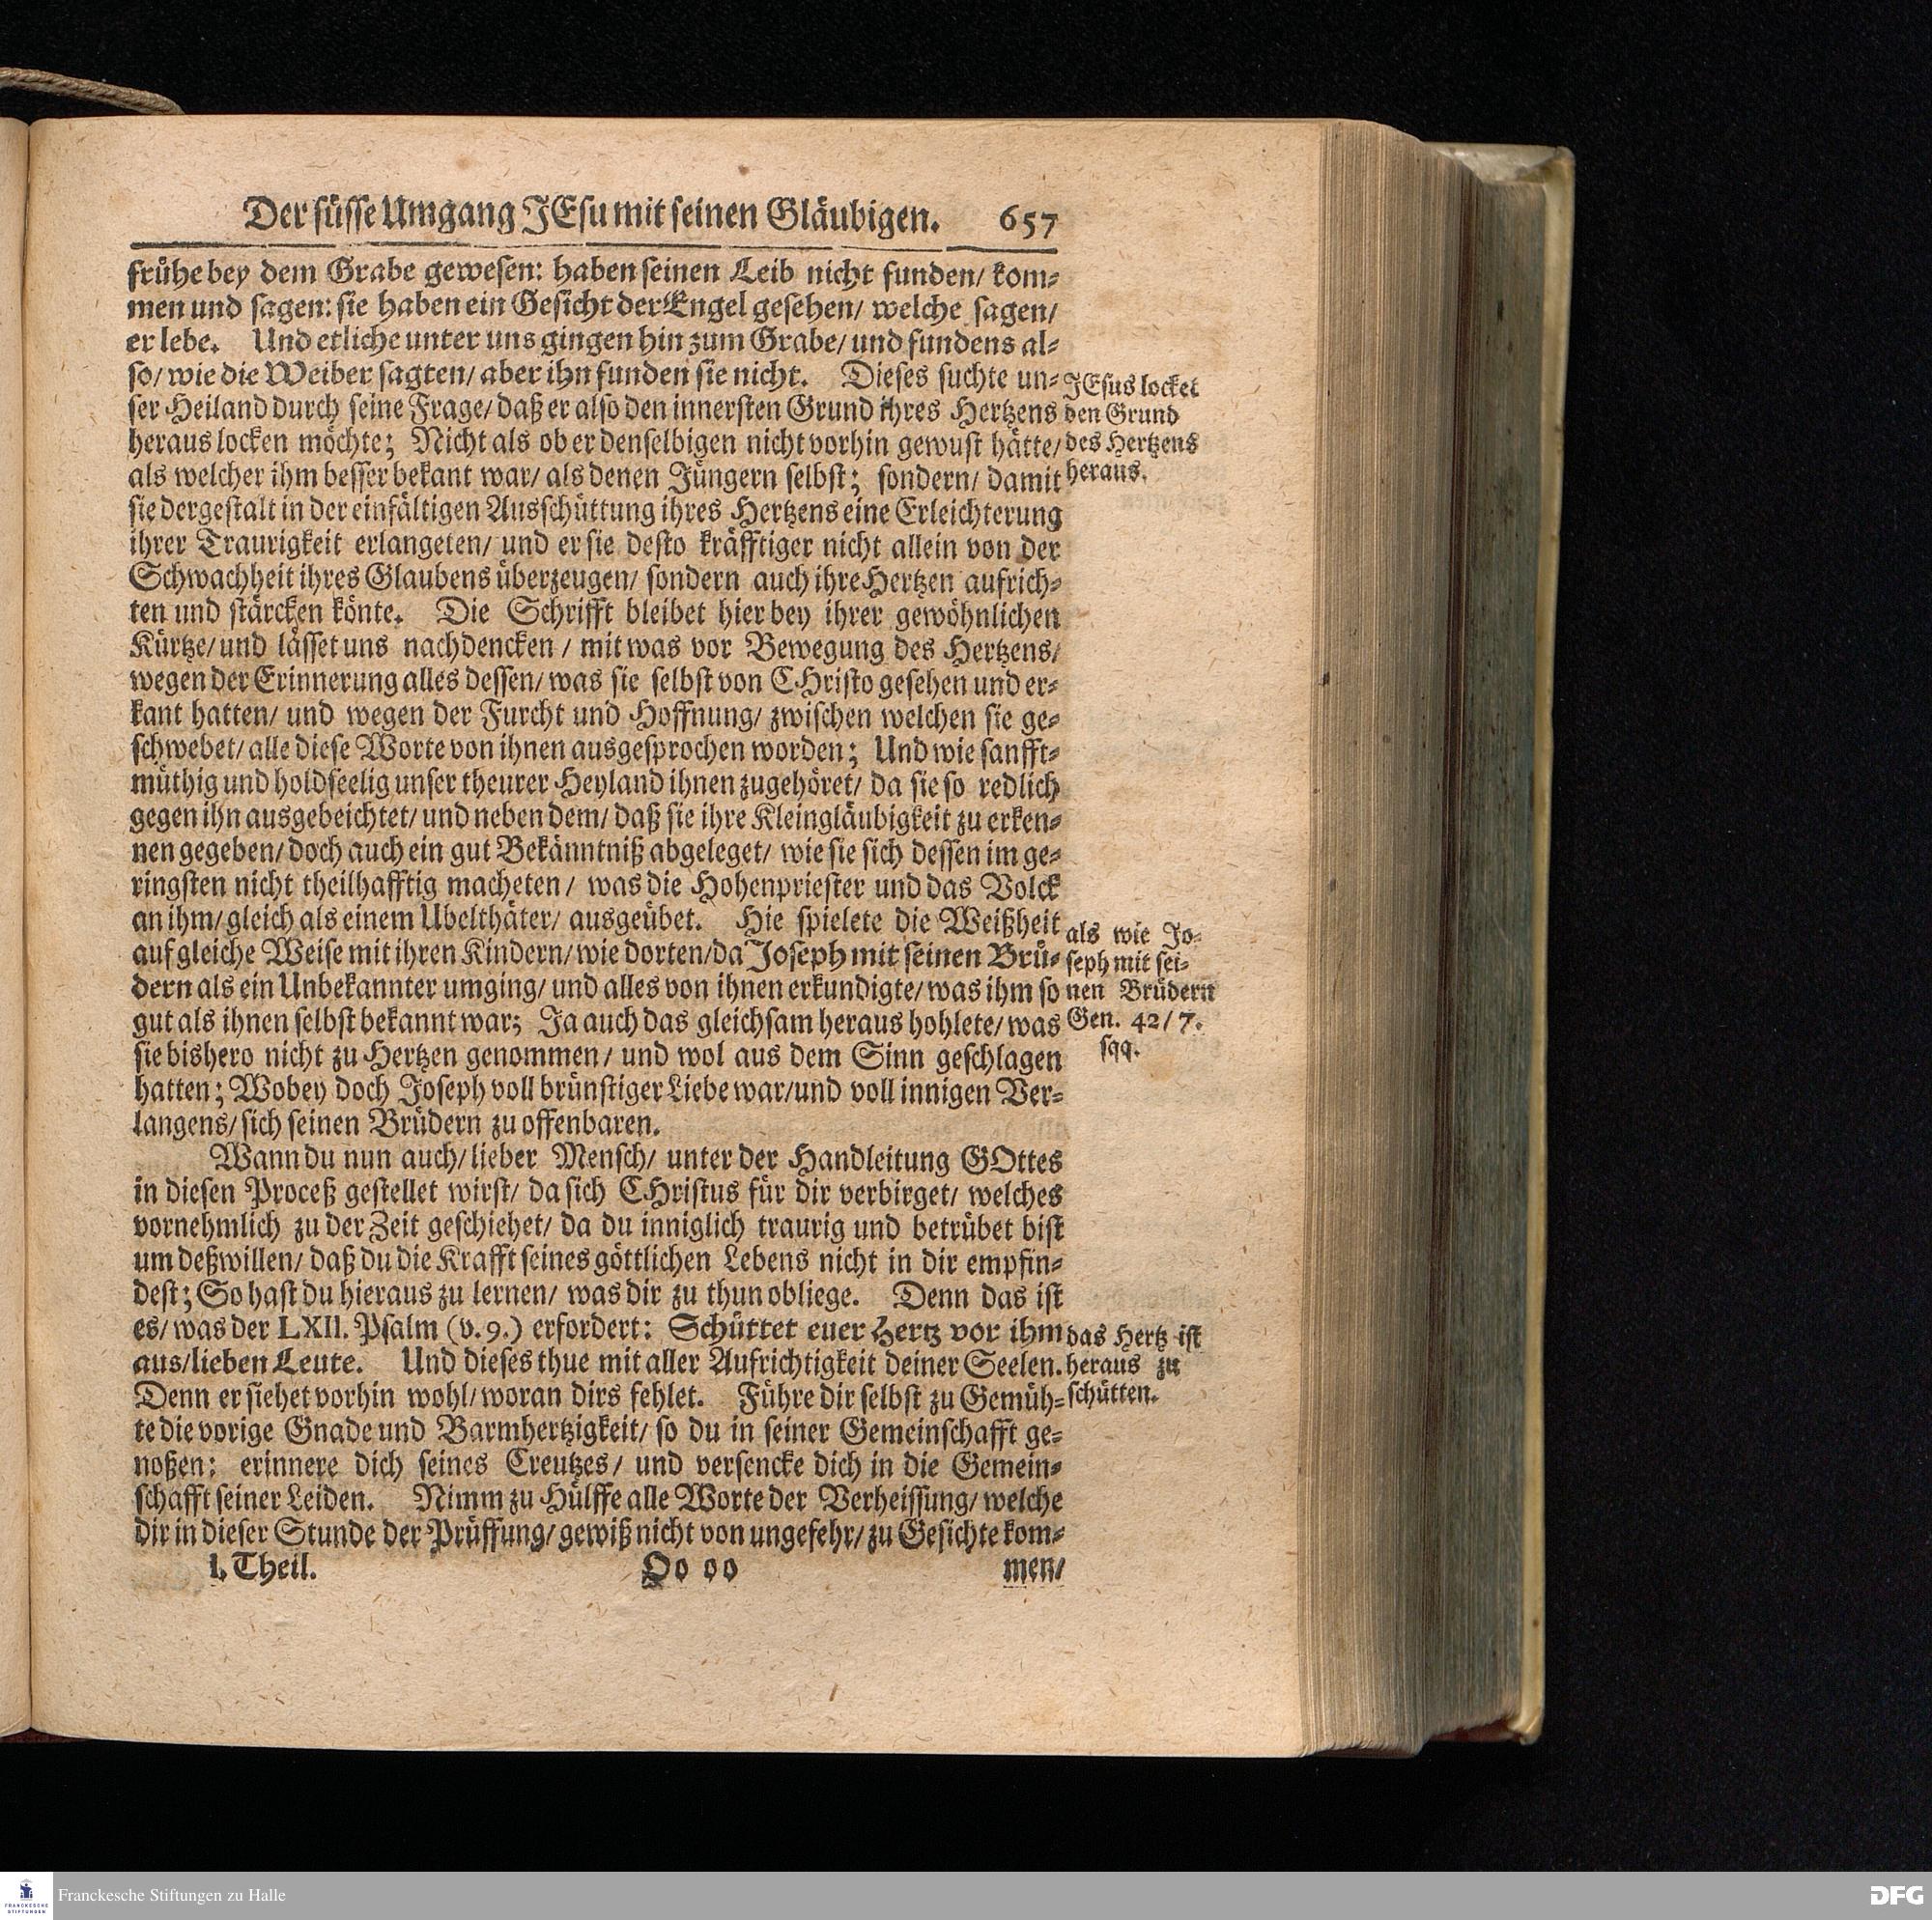 Der süsse Umgang JEsu mit seinen Gläubigen. 657
frühe bey dem Grabe gewesen: haben seinen Leib nicht funden/ kom-
men und sagen: sie haben ein Gesicht der Engel gesehen/ welche sagen/
er lebe. Und etliche unter uns gingen hin zum Grabe/ und fundens al-
so/ wie die Weiber sagten/ aber ihn funden sie nicht. Dieses suchte un-
ser Heiland durch seine Frage/ daß er also den innersten Grund ihres Hertzens
heraus locken möchte; Nicht als ob er denselbigen nicht vorhin gewust hätte/
als welcher ihm besser bekant war/ als denen Jüngern selbst; sondern/ damit
sie dergestalt in der einfältigen Ausschüttung ihres Hertzens eine Erleichterung
ihrer Traurigkeit erlangeten/ und er sie desto kräfftiger nicht allein von der
Schwachheit ihres Glaubens überzeugen/ sondern auch ihre Hertzen aufrich-
ten und stärcken könte. Die Schrifft bleibet hier bey ihrer gewöhnlichen
Kürtze/ und lässet uns nachdencken/ mit was vor Bewegung des Hertzens/
wegen der Erinnerung alles dessen/ was sie selbst von CHristo gesehen und er-
kant hatten/ und wegen der Furcht und Hoffnung/ zwischen welchen sie ge-
schwebet/ alle diese Worte von ihnen ausgesprochen worden; Und wie sanfft-
müthig und holdseelig unser theurer Heyland ihnen zugehöret/ da sie so redlich
gegen ihn ausgebeichtet/ und neben dem/ daß sie ihre Kleingläubigkeit zu erken-
nen gegeben/ doch auch ein gut Bekänntniß abgeleget/ wie sie sich dessen im ge-
ringsten nicht theilhafftig macheten/ was die Hohenpriester und das Volck
an ihm/ gleich als einem Ubelthäter/ ausgeübet. Hie spielete die Weißheit
auf gleiche Weise mit ihren Kindern/ wie dorten/ da Joseph mit seinen Brü-
dern als ein Unbekannter umging/ und alles von ihnen erkundigte/ was ihm so
gut als ihnen selbst bekannt war; Ja auch das gleichsam heraus hohlete/ was
sie bishero nicht zu Hertzen genommen/ und wol aus dem Sinn geschlagen
hatten; Wobey doch Joseph voll brünstiger Liebe war/ und voll innigen Ver-
langens/ sich seinen Brüdern zu offenbaren.
Wann du nun auch/ lieber Mensch/ unter der Handleitung GOttes
in diesen Proceß gestellet wirst/ da sich CHristus für dir verbirget/ welches
vornehmlich zu der Zeit geschiehet/ da du inniglich traurig und betrübet bist
um deßwillen/ daß du die Krafft seines göttlichen Lebens nicht in dir empfin-
dest; So hast du hieraus zu lernen/ was dir zu thun obliege. Denn das ist
es/ was der LXII. Psalm (v. 9.) erfordert: Schüttet euer Hertz vor ihm
aus/ lieben Leute. Und dieses thue mit aller Aufrichtigkeit deiner Seelen.
Denn er siehet vorhin wohl/ woran dirs fehlet. Führe dir selbst zu Gemüh-
te die vorige Gnade und Barmhertzigkeit/ so du in seiner Gemeinschafft ge-
noßen: erinnere dich seines Creutzes/ und versencke dich in die Gemein-
schafft seiner Leiden. Nimm zu Hülffe alle Worte der Verheissung/ welche
dir in dieser Stunde der Prüffung/ gewiß nicht von ungefehr/ zu Gesichte kom-
I. Theil. Oo oo men/
JEsus locket
den Grund
des Hertzens
heraus.
als wie Jo-
seph mit sei-
nen Brüdern
Gen. 42/ 7.
sqq.
das Hertz ist
heraus zu
schütten.
FRANCKESCHE
STIFTUNGEN
Franckesche Stiftungen zu Halle
DFG